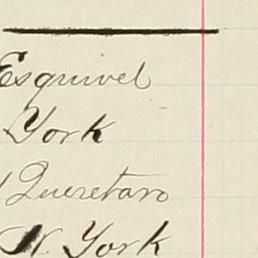 Esquivel
York
Queretaro
N. York